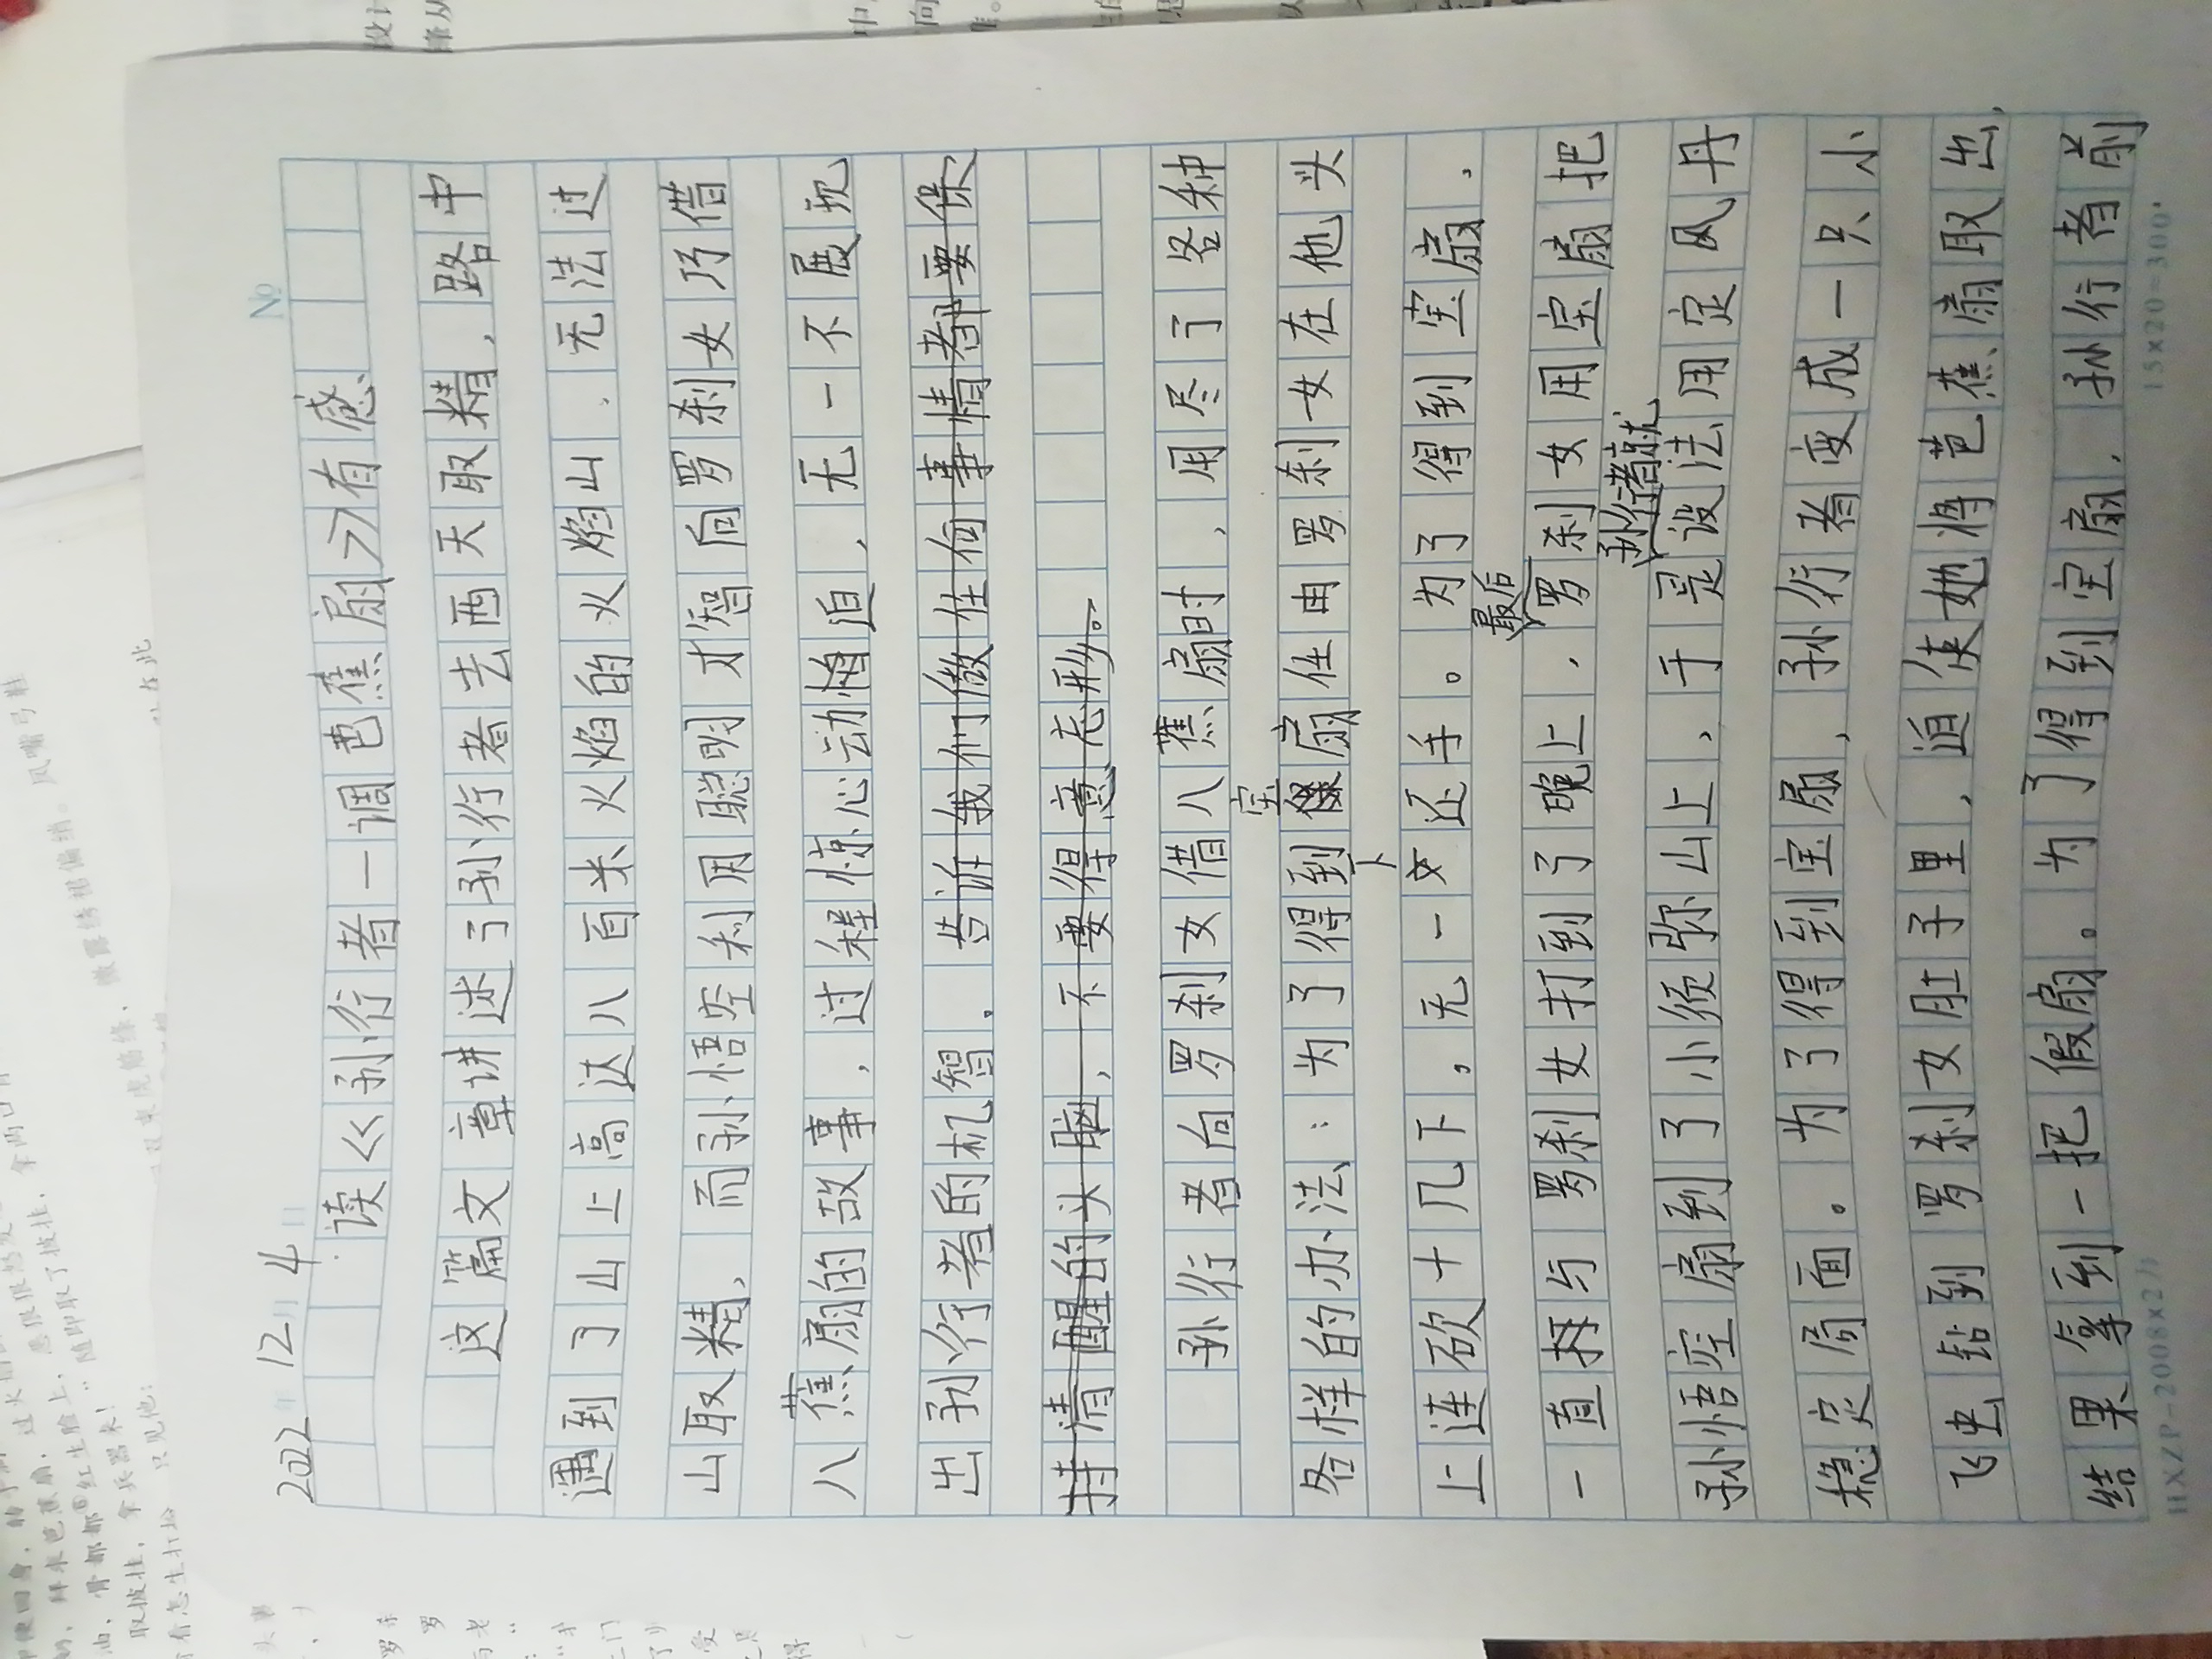 №
2022年12月4日
读《孙行者一调芭蕉扇》有感
这篇文章讲述了孙行者去西天取精,路中
遇到了山上高达八百米火焰的火焰山,无法过
山取精,而孙悟空利用聪明才智向罗刹女巧借
八蕉扇的故事,过程惊心动魄,无一不展现
出孙行者的机智。告诉我们做任何事情都要保
持清醒的头脑,不要得意忘形。
孙行者向罗刹女借八蕉扇时,用尽了各种
各样的办法:为了得到宝扇任由罗刹女在他头
上连砍十几下,无一下还手。为了得到宝扇,
一直与罗刹女打到了晚上,最后罗刹女用宝扇把
孙悟空扇到了小须弥山上,于是孙行者就设法用定风丹
稳定局面。为了得到宝扇,孙行者变成一只小
飞虫钻到罗刹女肚子里,迫使她将芭蕉扇取出,
结果拿到一把假扇。为了得到宝扇,孙行者前
HXZP-2008×27
15×20=300